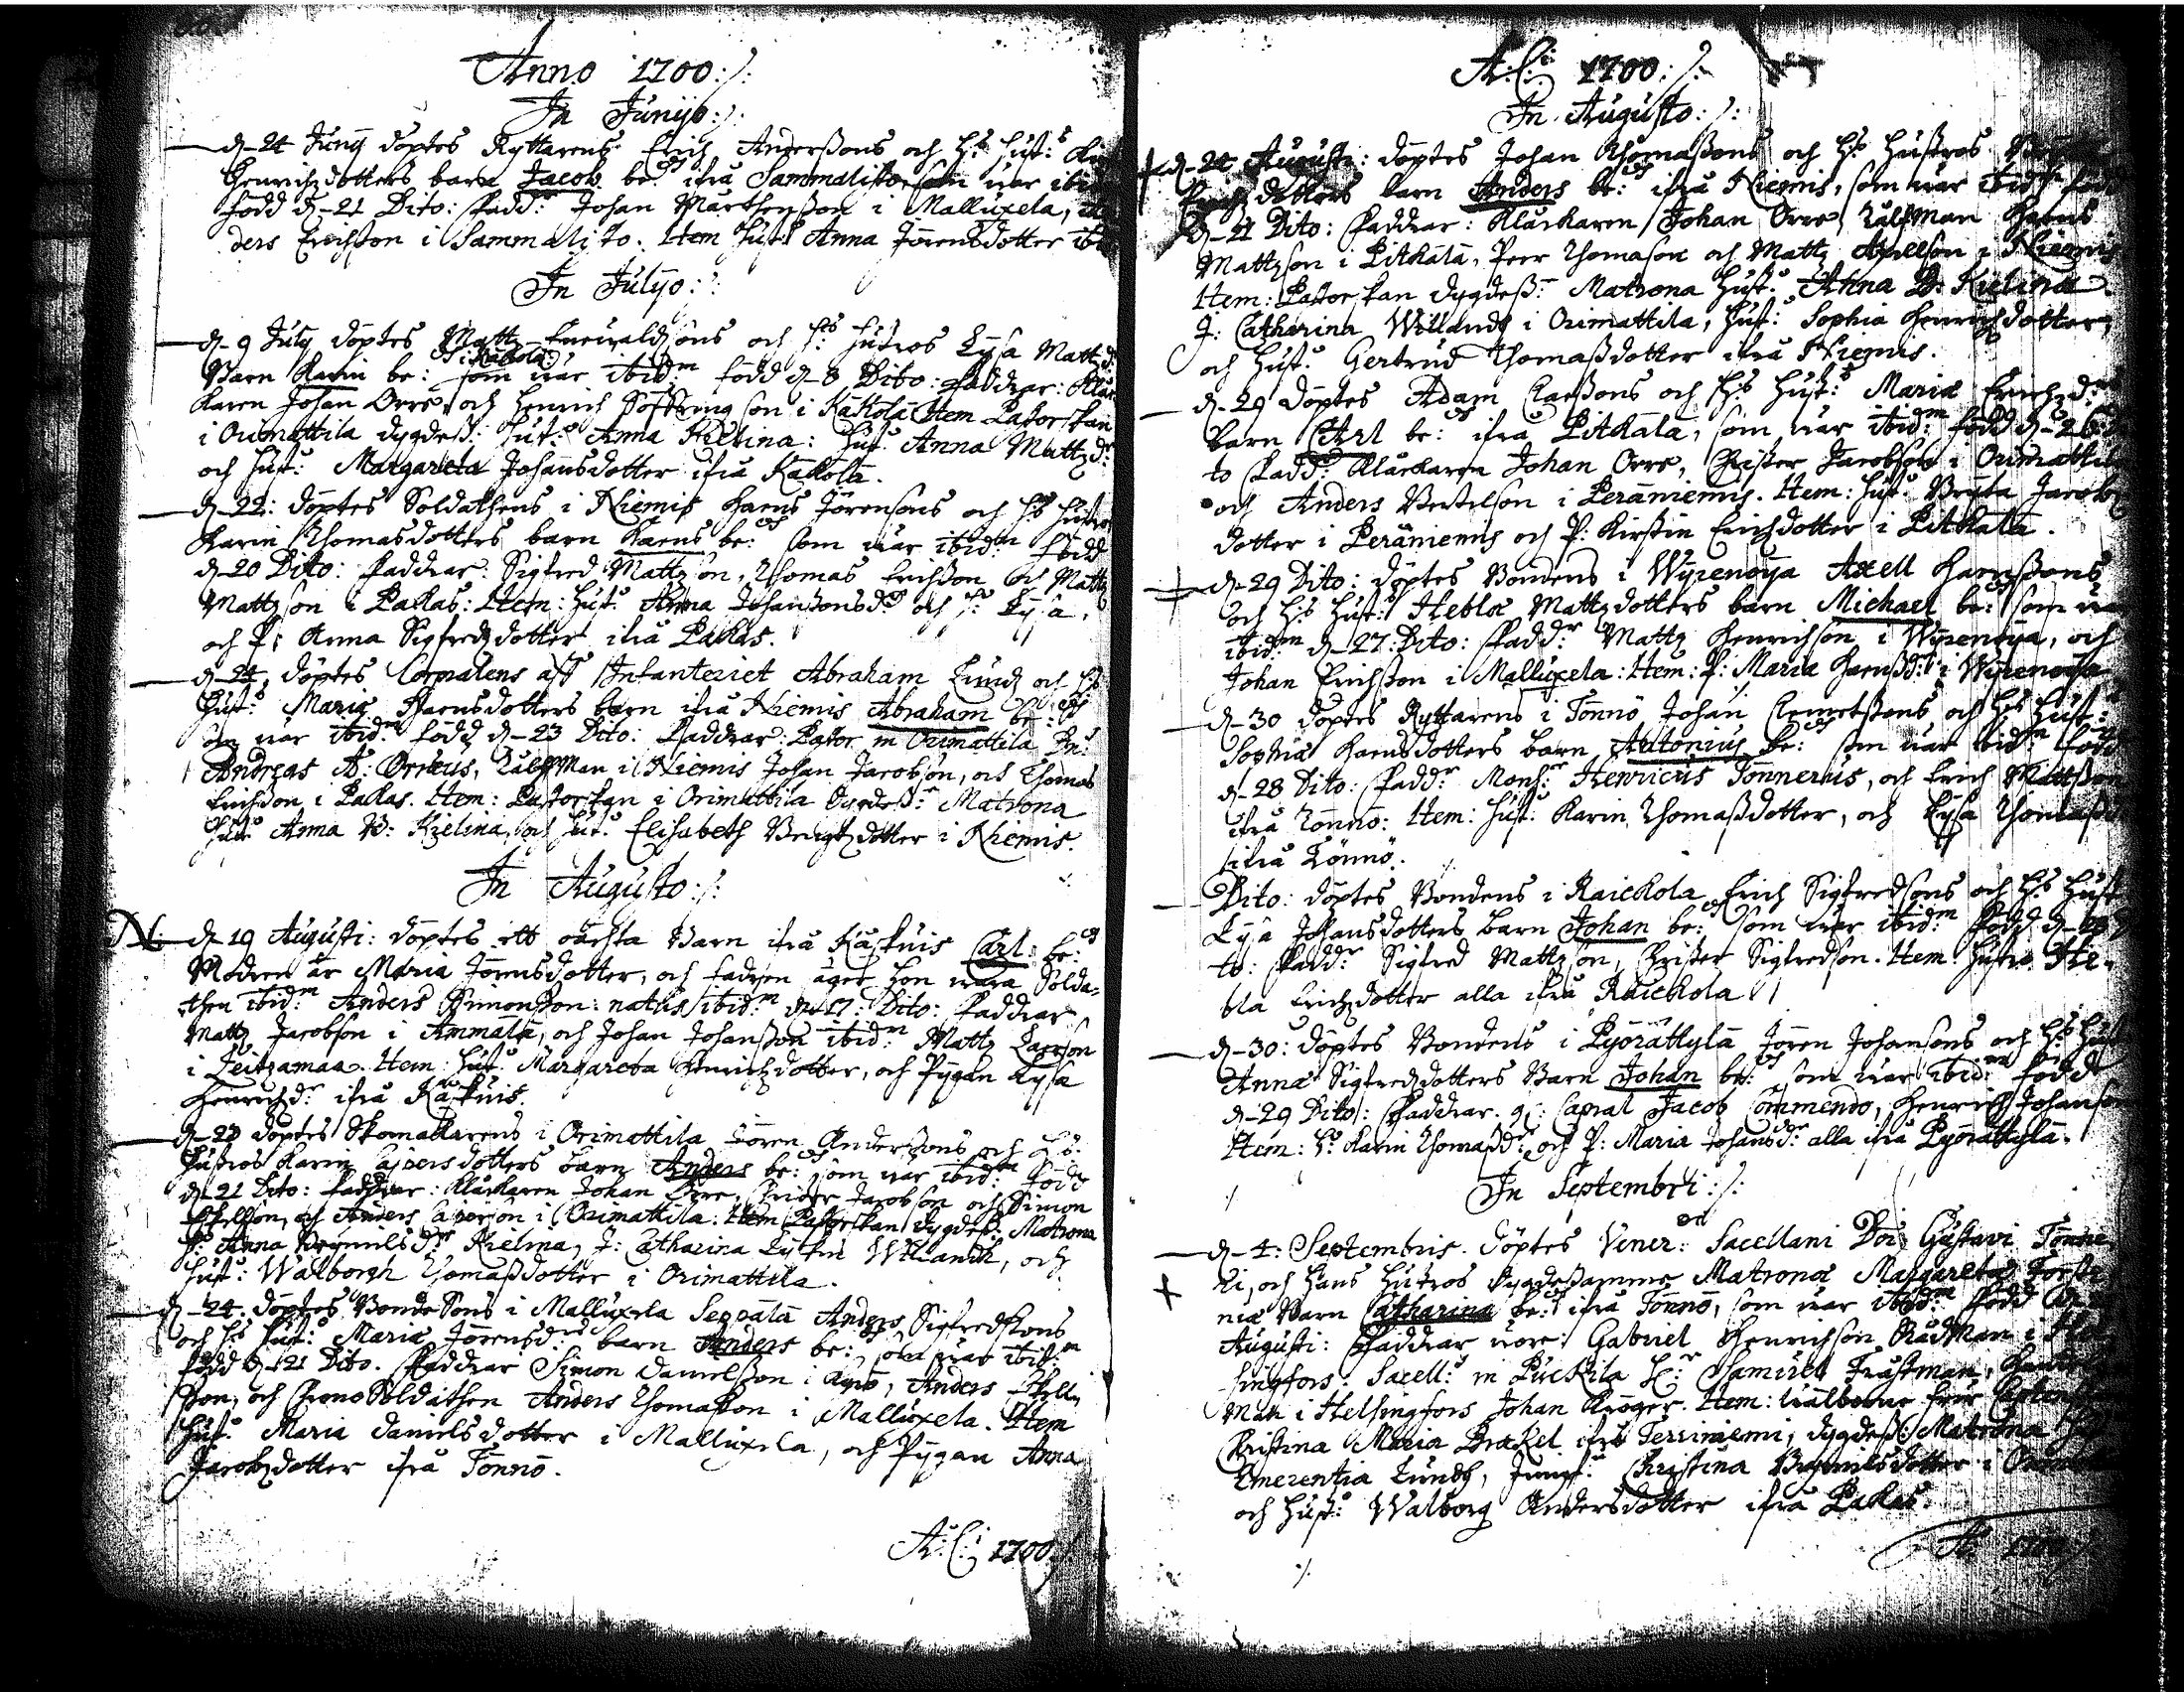 Anno 1700:/:
In Junijo:/:
d. 24 Junij döptes Ryttarens Erich Anderßons och Hs Hust:s
Henrichzdotters barn Jacob be: ifrå Sammalisto, som war ibid
född d. 21 Dito: Fadd:r Johan Marthenßon i Malluxela,
ders Erichßon i Sammalisto. Item Hust: Anna Jörensdotter ibi
In Julijo:/:
d. 9 July döptes Mattz Enewaldsons och Hs Hustros Lysa Mattzd:
Barn Karin be: i Käkölä som war ibid:m född d. 8 Dito: Faddrar: Klåc
karen Johan Orre, och Henrich Söffringson i Käkölä Item Pastorskan
i Orimattila dygdeß: Hust: Anna Kielina: Hust: Anna Mattzd:r
och Hust: Margareta Johansdotter ifrå Käkölä.
d. 22: döptes Soldathens i Niemis Haens Jörensons och Hs Hustro
Karin Thomasdotters barn Haens be: som war ibid:m född
d. 20 Dito: Faddrar: Sigfred Mattzson, Thomas Erichßon och Mattz
Mattzson i Pakas: Item: Hust: Anna Johansonsd:r och H: Lysa,
och P: Anna Sigfredzdotter ifrå Pakas.
d. 24, döptes Corpralens aff Infanteriet Abraham Lundz och Hs
Hust:s Maria Haensdotters barn ifrå Niemis Abraham be:
som war ibid:m född d. 23 Dito: Faddrar: Pastor in Orimattila Dn:
Andreas A: Orræus, Länßman i Niemis Johan Jacobson, och Thomas
Erichßon i Pakas. Item: Pastorskan i Orimattila dygdeß:r Matrona
Hust: Anna B: Kielina, och Hust: Elisabeth Bengtzdotter i Niemis.
In Augusto:/:
N: d. 19 Augusti: döptes ett oächta Barn ifrå Käskuis Carl be:
Modren är Maria Jörensdotter, och fadren äger hon wara Solda=
then ibid:m Anders Simonßon: natus ibid:m d. 17: Dito: Faddrar
Mattz Jacobson i Ammälä, och Johan Johanßon ibid:m Mattz Larson
i Leitzamaa. Item: Hust: Margareta Henrichzdotter, och Pygan Lysa
Henrichzd:r ifrå Käskuis.
d. 23 döptes Skomakarens i Orimattila Jören Anderßons och Hs:
Hustros Karin Caspersdotters barn Anders be: som war ibid:m född
d. 21 Dito: Faddrar: Klåckaren Johan Orre, Christer Jacobson och Simon
Eskelßon, och Anders Casperson i Orimattila: Item Pastorskan dygdeß: Matrona
H: Anna Brynnelsd:r Kielina, J: Catharina Willandh, och
Hust: Walborgh Thomaßdotter i Orimattila.
d. 24. döptes BondeSons i Malluxela Seppälä Anders Sigfredßons
och Hs Hust:s Maria Jörensd:rs barn Anders be: som war ibid:m
född d. 21 Dito. Faddrar Simon Danielßon i Kyrö, Anders
son, och Chrono Soldathen Anders Thomaßon i Malluxela. Item
Hust: Maria Danielsdotter i Malluxela, och Pygan Anna
Jacobzdotter ifrå Tönnö.
A:C: 1700:/:
A:C: 1700:/:
In Augusto:/:
d. 24 Augusti: döptes Johan Thomaßons och Hs Hustros
dotters barn Anders be: ifrå Niemis, som war ibid:m född
d. 21 Dito: Faddrar: Klåckaren Johan Orre, Länßman Haens
Mattzson i Pitkälä, Peer Thomason och Mattz Axellson i Niemis
Item: Pastorskan dygdeß:r Matrona Hust: Anna B: Kielina.
J: Catharina Willandh i Orimattila, Hust: Sophia Henrichzdotter,
och Hust: Gertrud Thomaßdotter ifrå Niemis.
d. 29 döptes Adam Claeßons och Hs Hust:s Maria Erichzd:rs
barn Carl be: ifrå Pitkälä, som war ibid:m född d. 26 Di
to Fadd:r Klåckaren Johan Orre, Christer Jacobson i Orimattila
och Anders Bertelson i Peräniemis. Item: Hust: Bryta Jacobz
dotter i Peräniemis och P: Kirstin Erichzdotter i Pitkälä.
d. 29 Dito: döptes Bondens i Wyrenoya Axell Haenßons
och Hs Hust:s Hebla Mattzdotters barn Michael be: som wa
ibid:m d. 27: Dito: Fadd:r Mattz Henrichson i Wyrenoya, och
Johan Erichßon i Malluxela: Item: P: Maria Haensd:r i Wyrenoya
d. 30 döptes Ryttarens i Tönnö Johan Clemetßons och Hs Hust:s
Sophia Haensdotters barn Antonius be: som war ibid:m född
d. 28 Dito: Fadd:r Mons:r Henricus Tönnerus, och Erich Matßon
ifrå Tönnö: Item: Hust: Karin Thomaßdotter, och Lysa Thomaßd
ifrå Tönnö.
Dito: döptes Bondens i Raickola Erich Sigfredsons och Hs Hust
Lysa Johansdotters barn Johan be: som war ibid:m född d.
to: Fadd:r Sigfred Mattzson, Christer Sigfredson. Item Hustro He=
bla Erichzdotter alla ifrå Raickola
d. 30: döptes Bondens i Pyörättylä Jören Johansons och Hs Hust
Anna Sigfredzdotters Barn Johan be: som war ibid:m född
d. 29 Dito: Faddrar. Capral Jacob Commendo, Henrich Johanson
Item: H: Karin Thomaßd:r och P: Maria Johansd:r alla ifrå Pyörättylä.
In Septembri:/:
d. 4: Septembris. döptes Vener: Sacellani Dni Gustavi Tönne
ri, och Hans Hustros dygdesamme Matronæ Margaretæ
niæ Barn Catharina be: ifrå Tönnö, som war ibid:m född
Augusti: Faddrar wore: Gabriel Henrichson RådMan i Hel
singfors. Sacell: in Pückila H:r Samuel Trästman,
Man i Helsingfors Johan Kröger. Item: wälborne
Christina Maria Brakel ifrå Terriniemi, dygdeß: Matrona
Emerentia Lundh, Jungf: Christina Brynnilsdotter i
och Hust: Walborg Andersdotter ifrå Pakas.
A: 1700